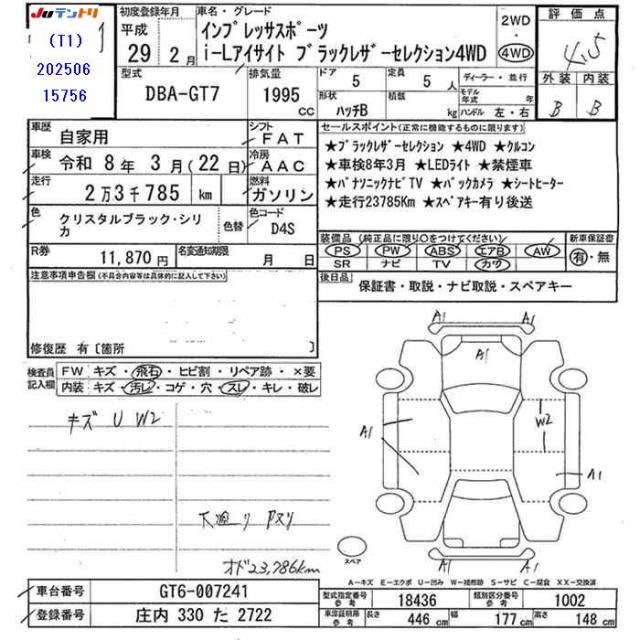 JUテントリ
(T1)
202506
15756
初度登録年月
平成
29年 2月
車名・グレード
インプレッサスポーツ
i-Lアイサイト ブラックレザーセレクション4WD
2WD
・
4WD
評価点
4.5
外装 内装
B B
型式
DBA-GT7
排気量
1995
CC
ドア
5
ハッチB
定員
5人
積数
kg
ディーラー・並行
モデル年式 年
ハンドル 左・右
車歴
自家用
シフト
FAT
車検
令和 8年 3月(22日)
冷房
AAC
走行
2万3千785 km
燃料
ガソリン
色
クリスタルブラック・シリカ
色替
色コード
D4S
R券
11,870円
名変通知期限
月 日
セールスポイント(正常に機能するものに限ります)
★ブラックレザーセレクション ★4WD ★クルコン
★車検8年3月 ★LEDライト ★禁煙車
★パナソニックナビTV ★バックカメラ ★シートヒーター
★走行23785Km ★スペアキー有り後送
装備品(純正品に限り○をつけてください)
PS PW ABS エアB AW
SR ナビ TV カワ
新車保証書
有・無
後日品
保証書・取説・ナビ取説・スペアキー
注意事項申告欄(不具合内容等は具体的に記入して下さい)
修復歴 有〔箇所
検査員記入欄
FW キズ・飛石・ヒビ割・リペア跡・×要
内装 キズ・汚レ・コゲ・穴・スレ・キレ・破レ
キズ U W2
下廻り Pスリ
オド23,786km
A1 A1
A1
A1
W2
A1
A1 A1
スペア
A-キズ E-エクボ U-凹み W-補修跡 S-サビ C-腐食 XX-交換済
車台番号
GT6-007241
登録番号
庄内 330 た 2722
型式指定番号 参考
18436
類別区分番号 参考
1002
車庫証明用 参考
長さ 446 cm
幅 177 cm
高さ 148 cm